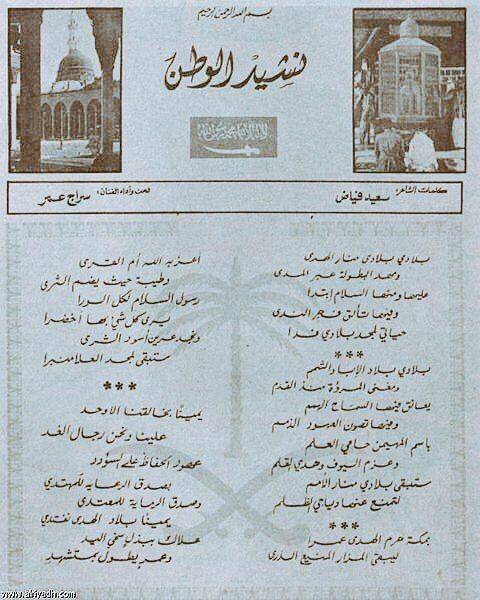 بسم الله الرحمن الرحيم
نشيد الوطن
لا إله إلا الله محمد رسول الله
كلمات الشاعر: سعيد فياض
لحن وأداء الفنان: سراج عمر
بلادي بلادي منار الهدى
ومهد البطولة عبر المدى
عليها ومنها السلام ابتدا
وفيها تألق فجر الندى
حياتي لمجد بلادي فدا
***
بلادي بلاد الإبا والشمم
ومغنى المروءة منذ القدم
يعانق فيها السماح الهمم
وفيها تصون العهود الذمم
باسم المهيمن حامي العلم
وعزم السيوف وهدي القلم
ستبقى بلادي منار الأمم
لتمنع عنها دياجي الظلم
***
بمكة حرم الهدى عمرا
ليبقى المزار المنيع الذرى
أعز به الله أم القرى
وطيبة حيث يضم الثرى
رسول السلام لكل الورا
يرى كل شيء بها أخضرا
ونجد عرين أسود الشرى
ستبقى لمجد العلا منبرا
***
يمينًا بخالقنا الأوحد
علينا ونحن رجال الغد
عهود الحفاظ على السؤدد
بصدق الرعاية للمهتدي
وصدق الرماية للمعتدي
يمينًا بلاد الهدى نفتدي
علاك ببذل سخي اليد
وعمر يطول بمستشهد
www.alriyadh.com